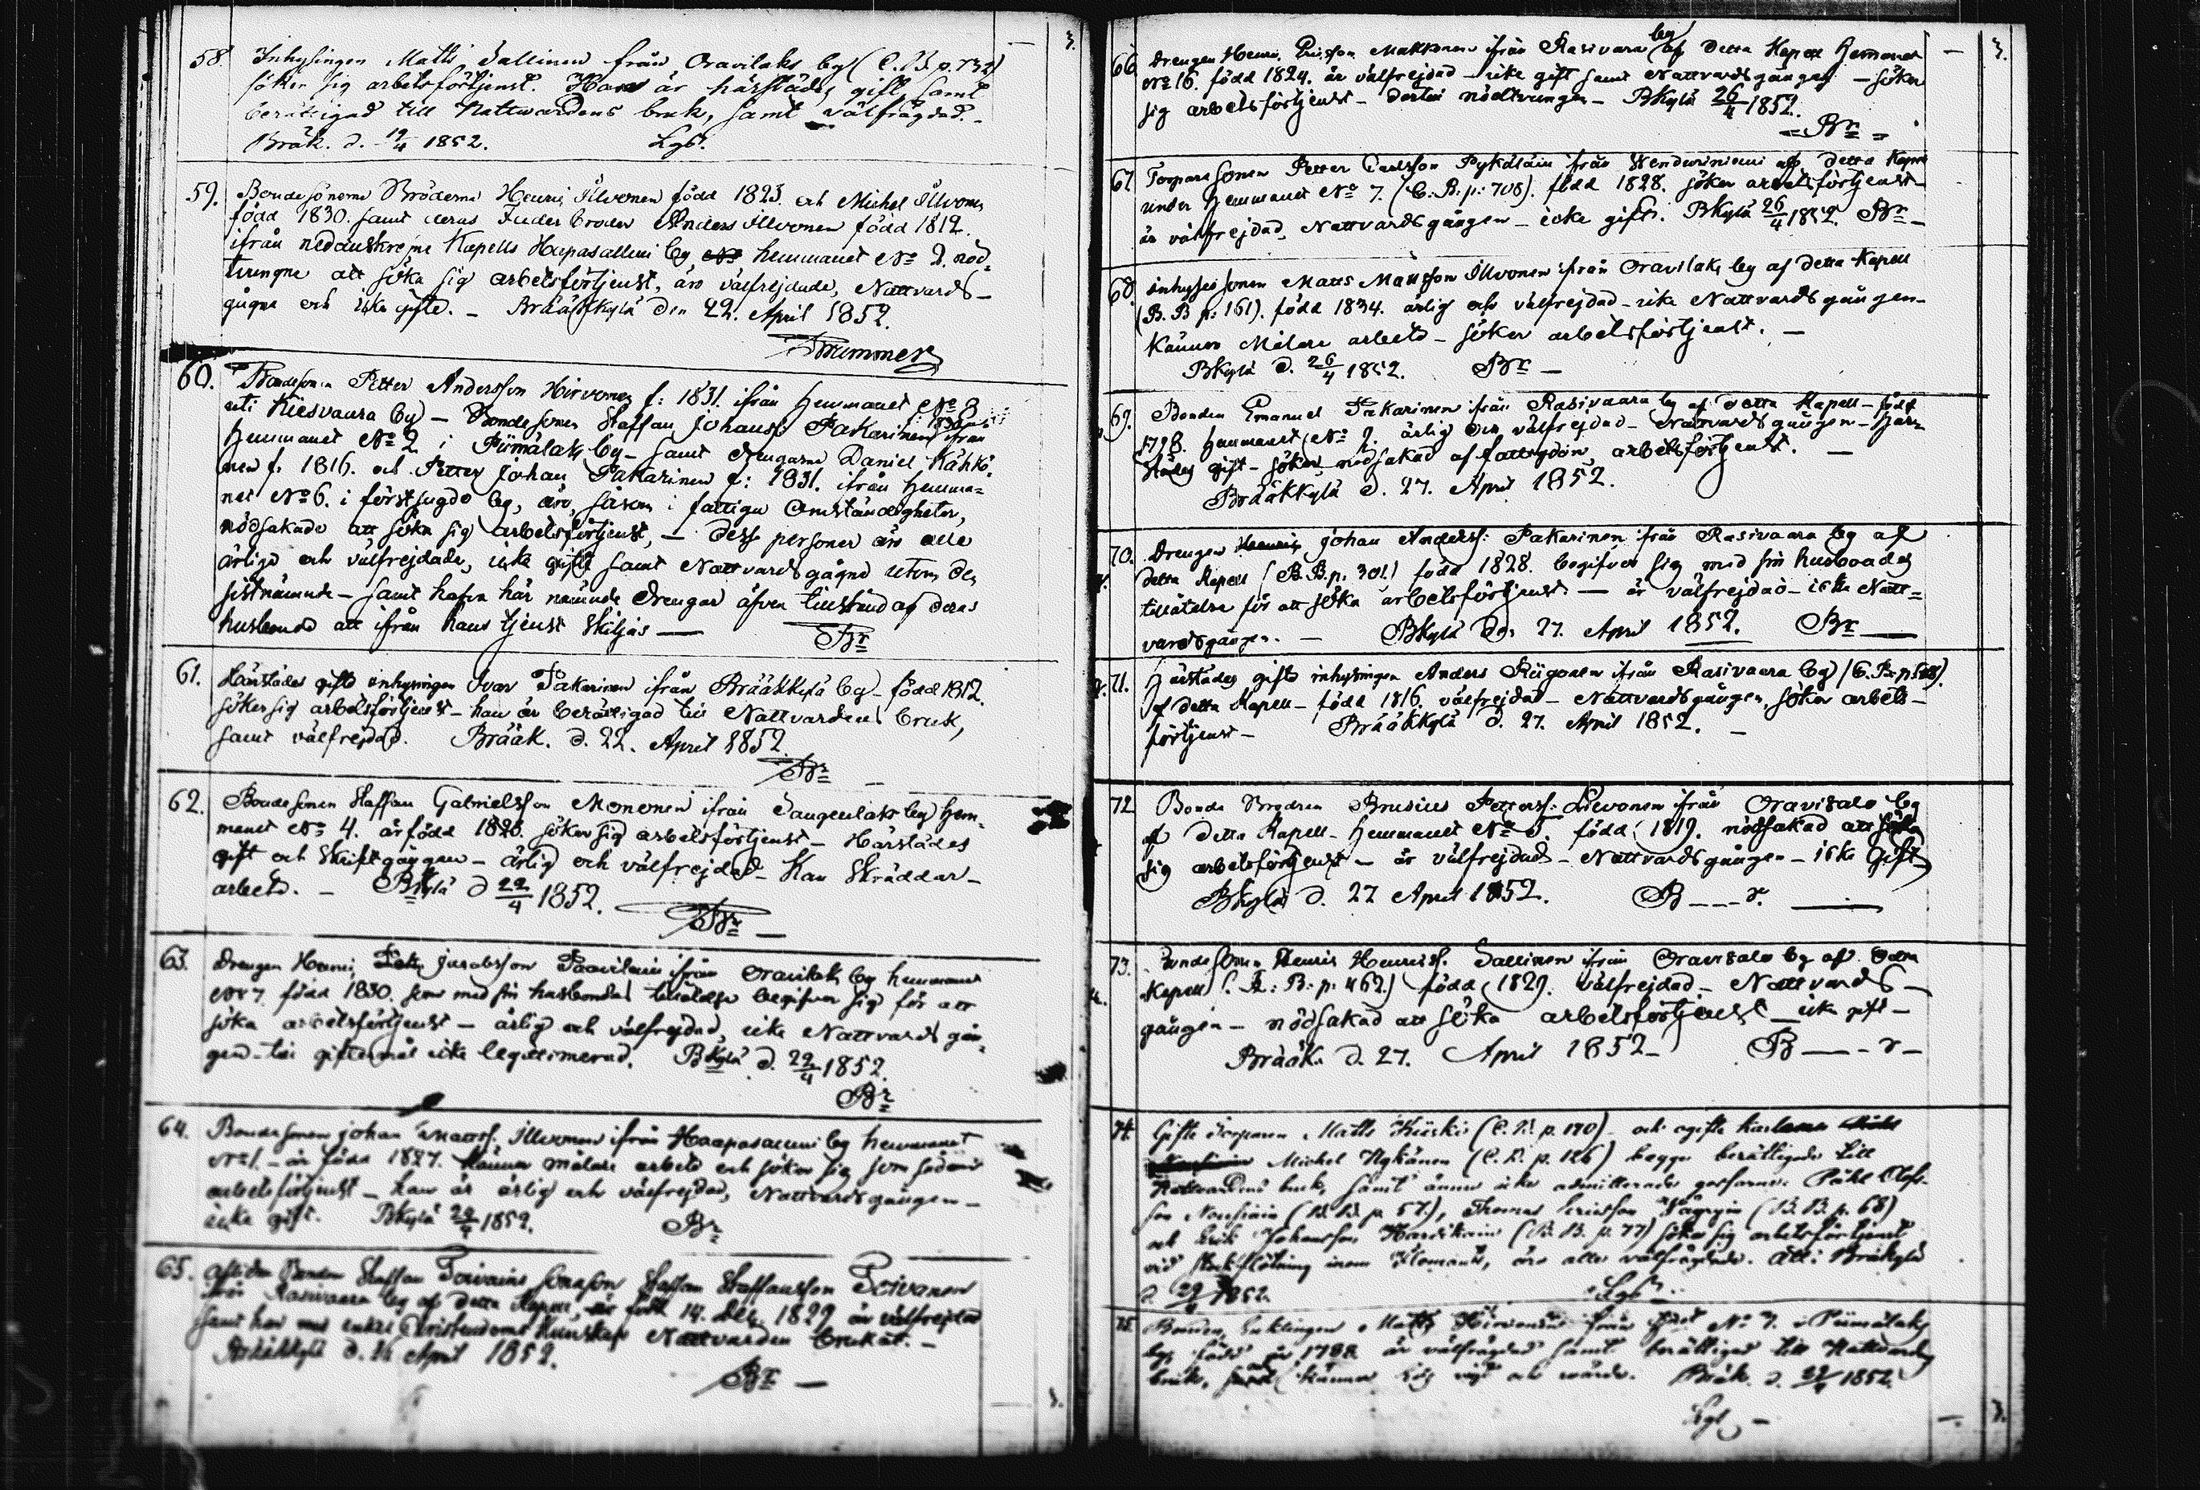 58. Inhysingen Matts Tallinen från Oravilaks by (C.B. p. 732)
söker sig arbetsförtjenst. Han är härstädes gift, samt
berättigad till Nattwardens bruk, samt välfrägdad. –
Bräk. d. 19/4 1852. Lgb.
59. Bondesönerna Bröderna Henric Ilvonen född 1823. och Michel Ilvonen
född 1830. samt deras Anders Ilvonen född 1812.
ifrån Kapells Haapasalmi by hemmanet No 2. nöd-
tvungne att söka sig arbetsförtjenst, äro välfrejdade, Nattvards-
gågne och icke gifte. – Brääkkylä den 22. April 1852.
Brummer
60. Bondesonen Petter Andersson Hirvonen f: 1831. ifrån Hemmanet No 8
uti Kiesvaara by – Bondesonen Staffan Johanss. Pakarinen ifrån
Hemmanet No 2 i Piimälaks by – samt drengarne Daniel Kähkö-
nen f. 1816. och Petter Johan Pakarinen f: 1831. ifrån Hemma-
net No 6. i förstsagde by, äro, såsom i fattiga Omständigheter,
nödsakade att söka sig arbetsförtjenst, – desse personer äro alle
ärlige och välfrejdade, icke gifte samt Nattvardsgågne utom den
sistnämnde – samt hafva här nämnde drengar äfven tillstånd af deras
husbonde att ifrån hans tjenst skiljas — Br
61. Härstädes gifte inhysingen Ivar Pakarinen ifrån Brääkkylä by – född 1812.
söker sig arbetsförtjenst – han är berättigad till Nattvardens bruk,
samt välfrejdad. Brääk. d. 22. April 1852.
Br –
62. Bondesonen Staffan Gabrielsson Mononen ifrån by hem-
manet No 4. är född 1828. söker sig arbetsförtjenst – Härstädes
gift och Skriftgången – ärlig och välfrejdad – Kan Skräddar-
arbete. – BKylä d 22/4 1852.
Br –
63. Drengen Henric Jacobsson Paavilain ifrån Oravilaks by hemmanet
No 7. född 1830. som med sin husbondes tillåtelse begifver sig för att
söka arbetsförtjenst – ärlig och välfrejdad, icke Nattvardsgån-
gen – till giftermål icke legitimerad. BKylä d. 22/4 1852.
Br
64. Bondesonen Johan Matts. Ilvonen ifrån Haapasalmi by hemmanet
No 1. – är född 1827. känner målare arbete och söker sig som sådan
arbetsförtjenst – han är ärlig och välfrejdad, Nattvardsgången –
icke gift. BKylä 22/4 1852. Br
65. Aflidne Bonden Staffan Toivains sonason Staffan Staffansson Toivanen
från Rasivaara by af detta Kapell, är född 14. Dec. 1829 är välfrejdad
samt har med enkel Christendoms Kunskap Nattvarden brukat. –
Brääkkylä d. April 1852.
Br —
66. Drengen Henric Ericsson Makkonen ifrån Rasivara by af detta Kapell Hemmanet
No 16. född 1824. är välfrejdad – icke gift samt Nattvardsgången – söker
sig arbetsförtjenst – dertill nödtvungen – BKylä 26/4 1852.
= Br =
67. Torparesonen Petter Carlsson Pykäläin ifrån af detta Kapell
under Hemmanet No 7. (C. B. p: 708). född 1828. söker arbetsförtjenst –
är välfrejdad, Nattvardsgången – icke gift. BKylä 26/4 1852. Br –
68. Inhyses sonen Matts Mattsson Ilvonen ifrån Oravilaks by af detta Kapell
(B. B p: 161). född 1834. ärlig och välfrejdad – icke Nattvardsgången –
känner Målare arbete – söker arbetsförtjenst. –
BKylä d. 26/4 1852. Br –
69. Bonden Emanuel Pakarinen ifrån Rasivaara by af detta Kapell – född
1798. hemmanet No 9. ärlig och välfrejdad – Nattvardsgången – här-
städes gift – söker, nödsakad af fattigdom, arbetsförtjenst. –
Brääkkylä d. 27. April 1852.
70. Drengen Johan Anderss: Pakarinen ifrån Rasivaara by af
detta Kapell (B. B. p. 301.) född 1828. begifver sig med sin husbondes
tillåtelse för att söka arbetsförtjenst — är välfrejdad – icke Natt-
vardsgången. – BKylä den 27. April 1852. Br —
71. Härstädes gifte inhysingen Anders Riigonen ifrån Rasivaara by (C. B. p.
af detta Kapell – född 1816. välfrejdad – Nattvardsgången, söker arbets-
förtjenst – Brääkkylä d. 27. April 1852. –
72. Bonde Brodren Brusius Petterss: ifrån Oravisalo by
af detta Kapell – Hemmanet No 5. född 1819. nödsakad att söka
sig arbetsförtjenst – är välfrejdad – Nattvardsgången – icke gift
BKylä d. 27 April 1852. B––r. —
73. Bondesonen Henric Henricss. Tallinen ifrån Oravisalo by af detta
Kapell (C: B: p: 462.) född 1829. välfrejdad – Nattvards-
gången – nödsakad att söka arbetsförtjenst – icke gift –
Brääk. d. 27. April 1852 – B––r–
74. Gifte Torparen Matts Kiiski (C. B. p. 170) och ogifte
Michel Nykänen (C. B. p. 126) begge berättigade till
Nattvardens bruk, samt ännu icke admitterade gossarne Påhl Olofs-
son Nousiain (B. B. p. 57.), Thomas Ericsson (B. B. p. 68)
och Erik Johansson (B. B. p. 77) söka sig arbetsförtjenst
vid stockflötning inom Ilomants, äro alla välfrägdade. Att: Bräkylä
d. 29/4 1852. Lgb
75. Bonden, Enklingen Matts Hirvonen från No 7. i Piimälaks
by, född år 1788 är välfrägdad samt berättigad till Nattvardens
bruk, Bräk. d. 1852.
Lgb –